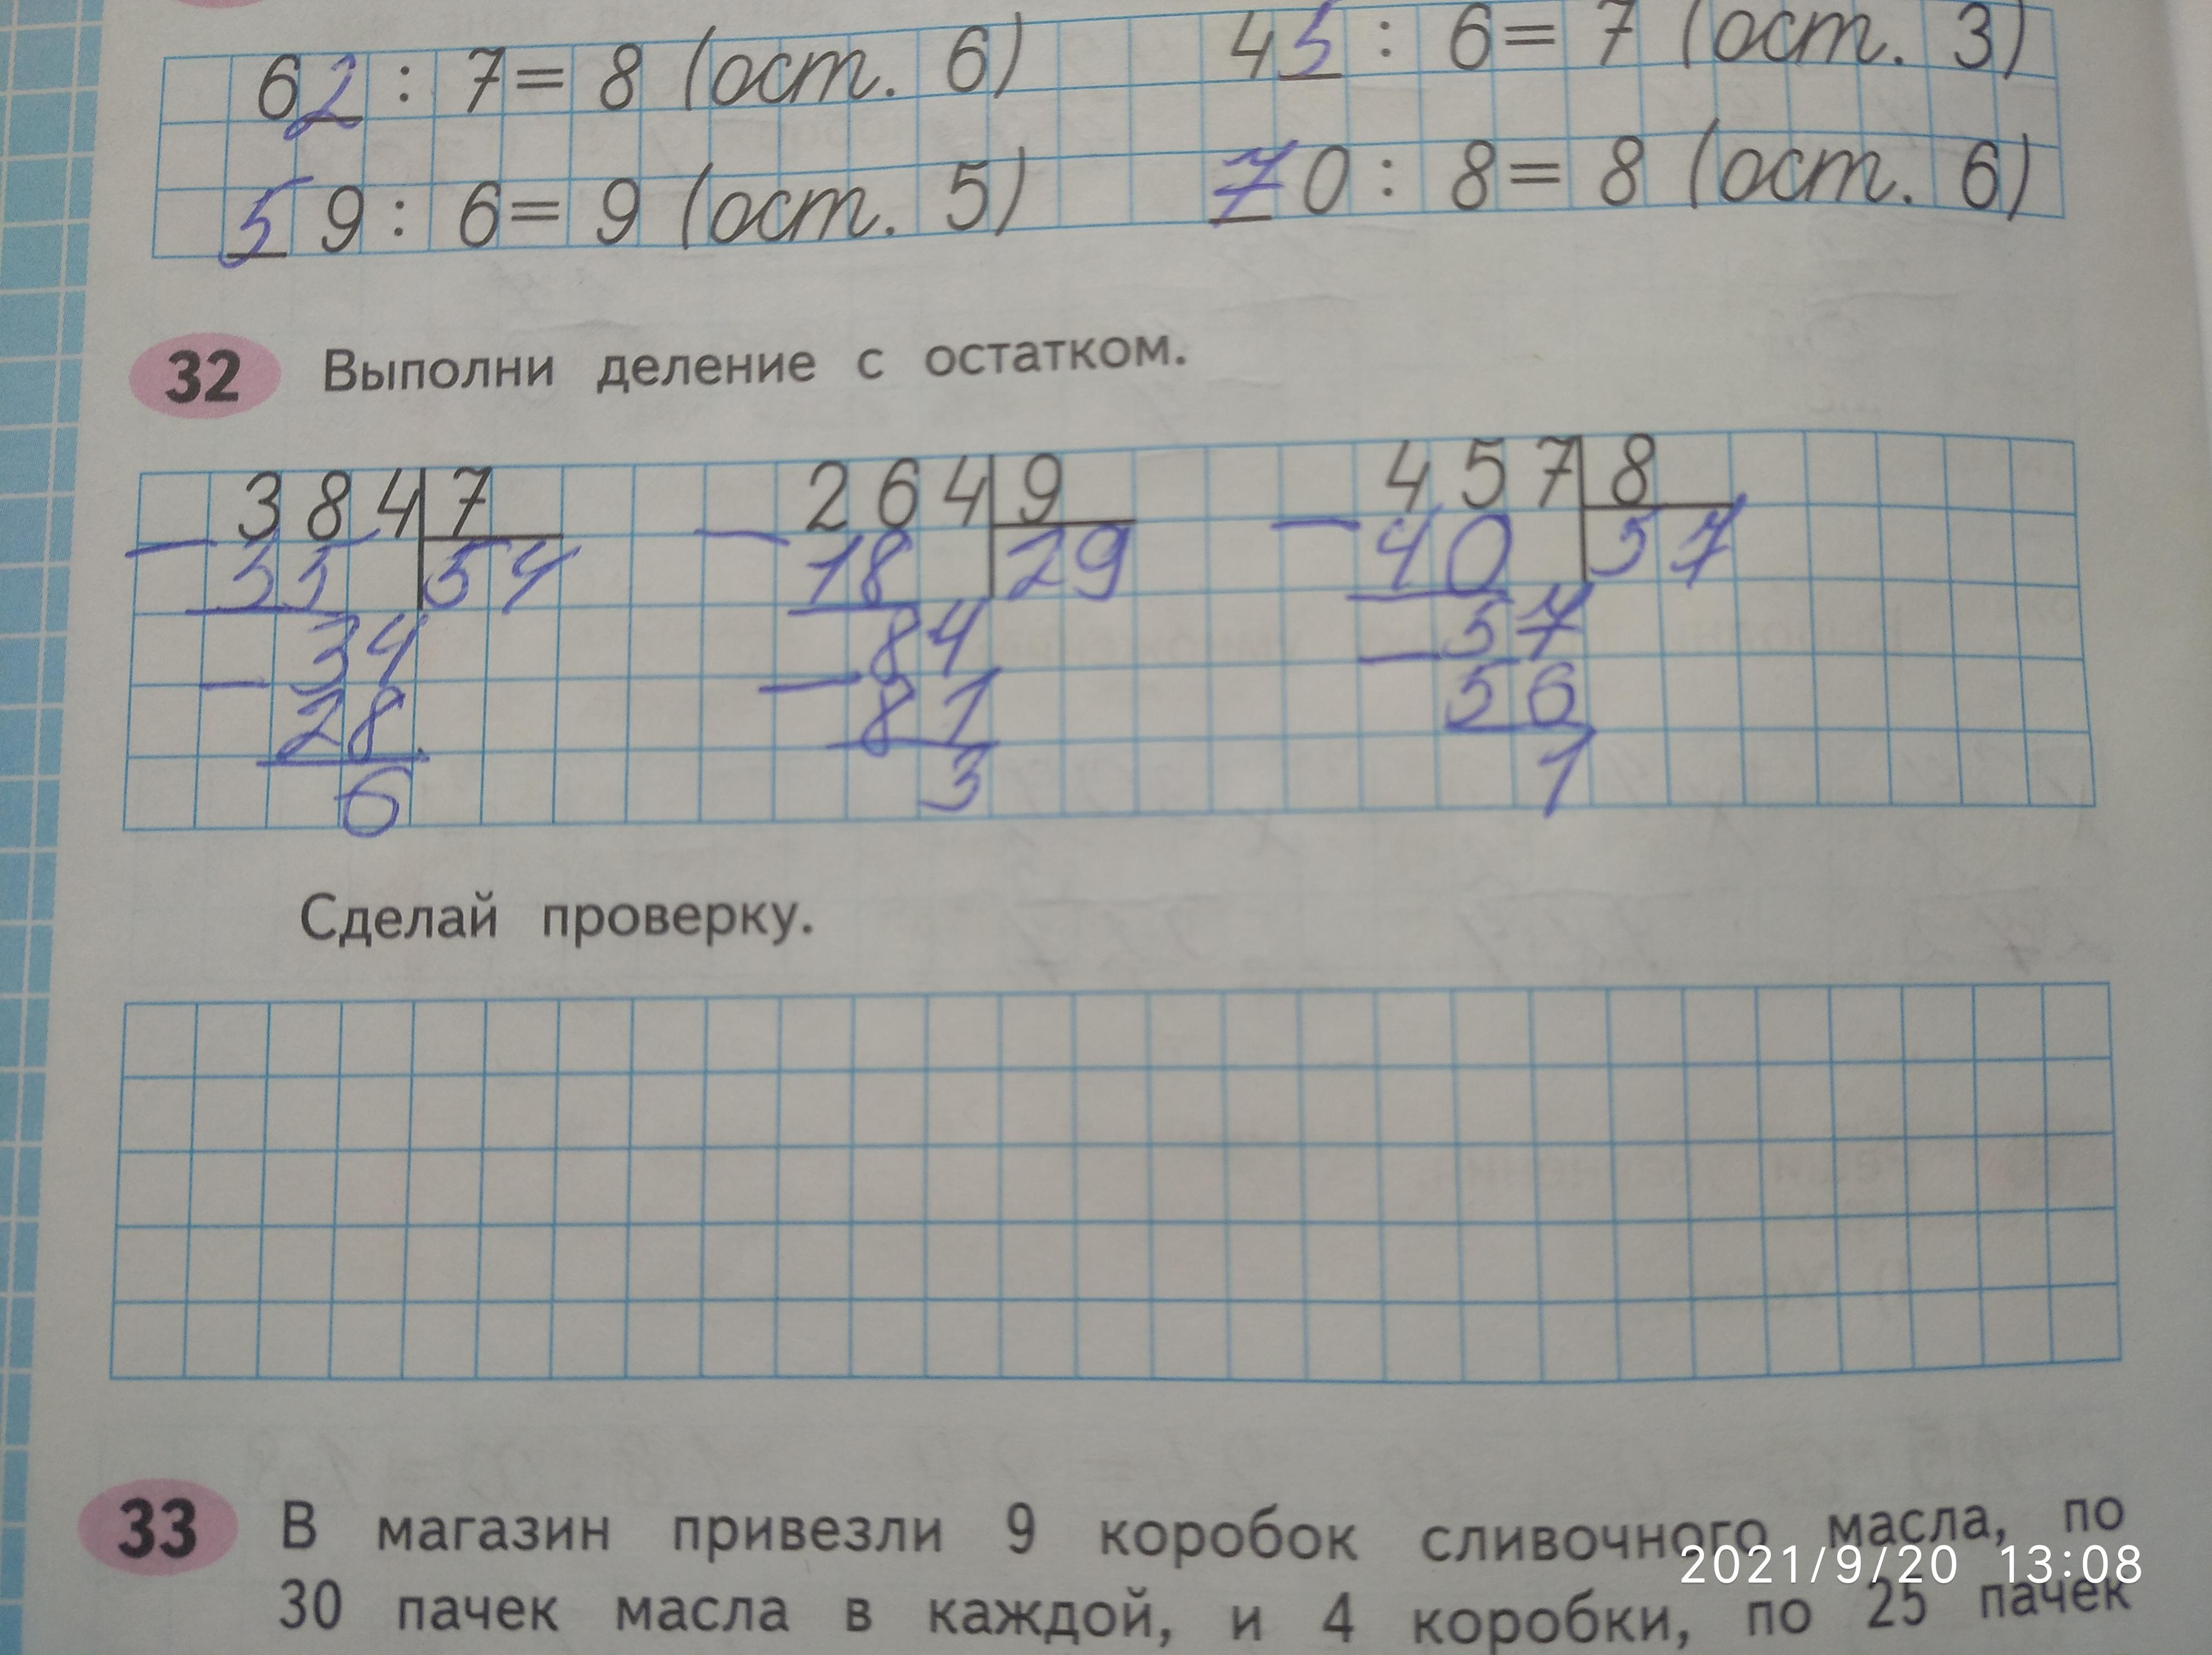 62 : 7 = 8 (ост. 6) 45 : 6 = 7 (ост. 3)
59 : 6 = 9 (ост. 5) 70 : 8 = 8 (ост. 6)
32 Выполни деление с остатком.
384 7 264 9 457 8
- 35 54 - 18 29 - 40 57
34 84 57
- 28 - 81 - 56
6 3 1
Сделай проверку.
33 В магазин привезли 9 коробок сливочного масла, по
2021/9/20 13:08
30 пачек масла в каждой, и 4 коробки, по 25 пачек